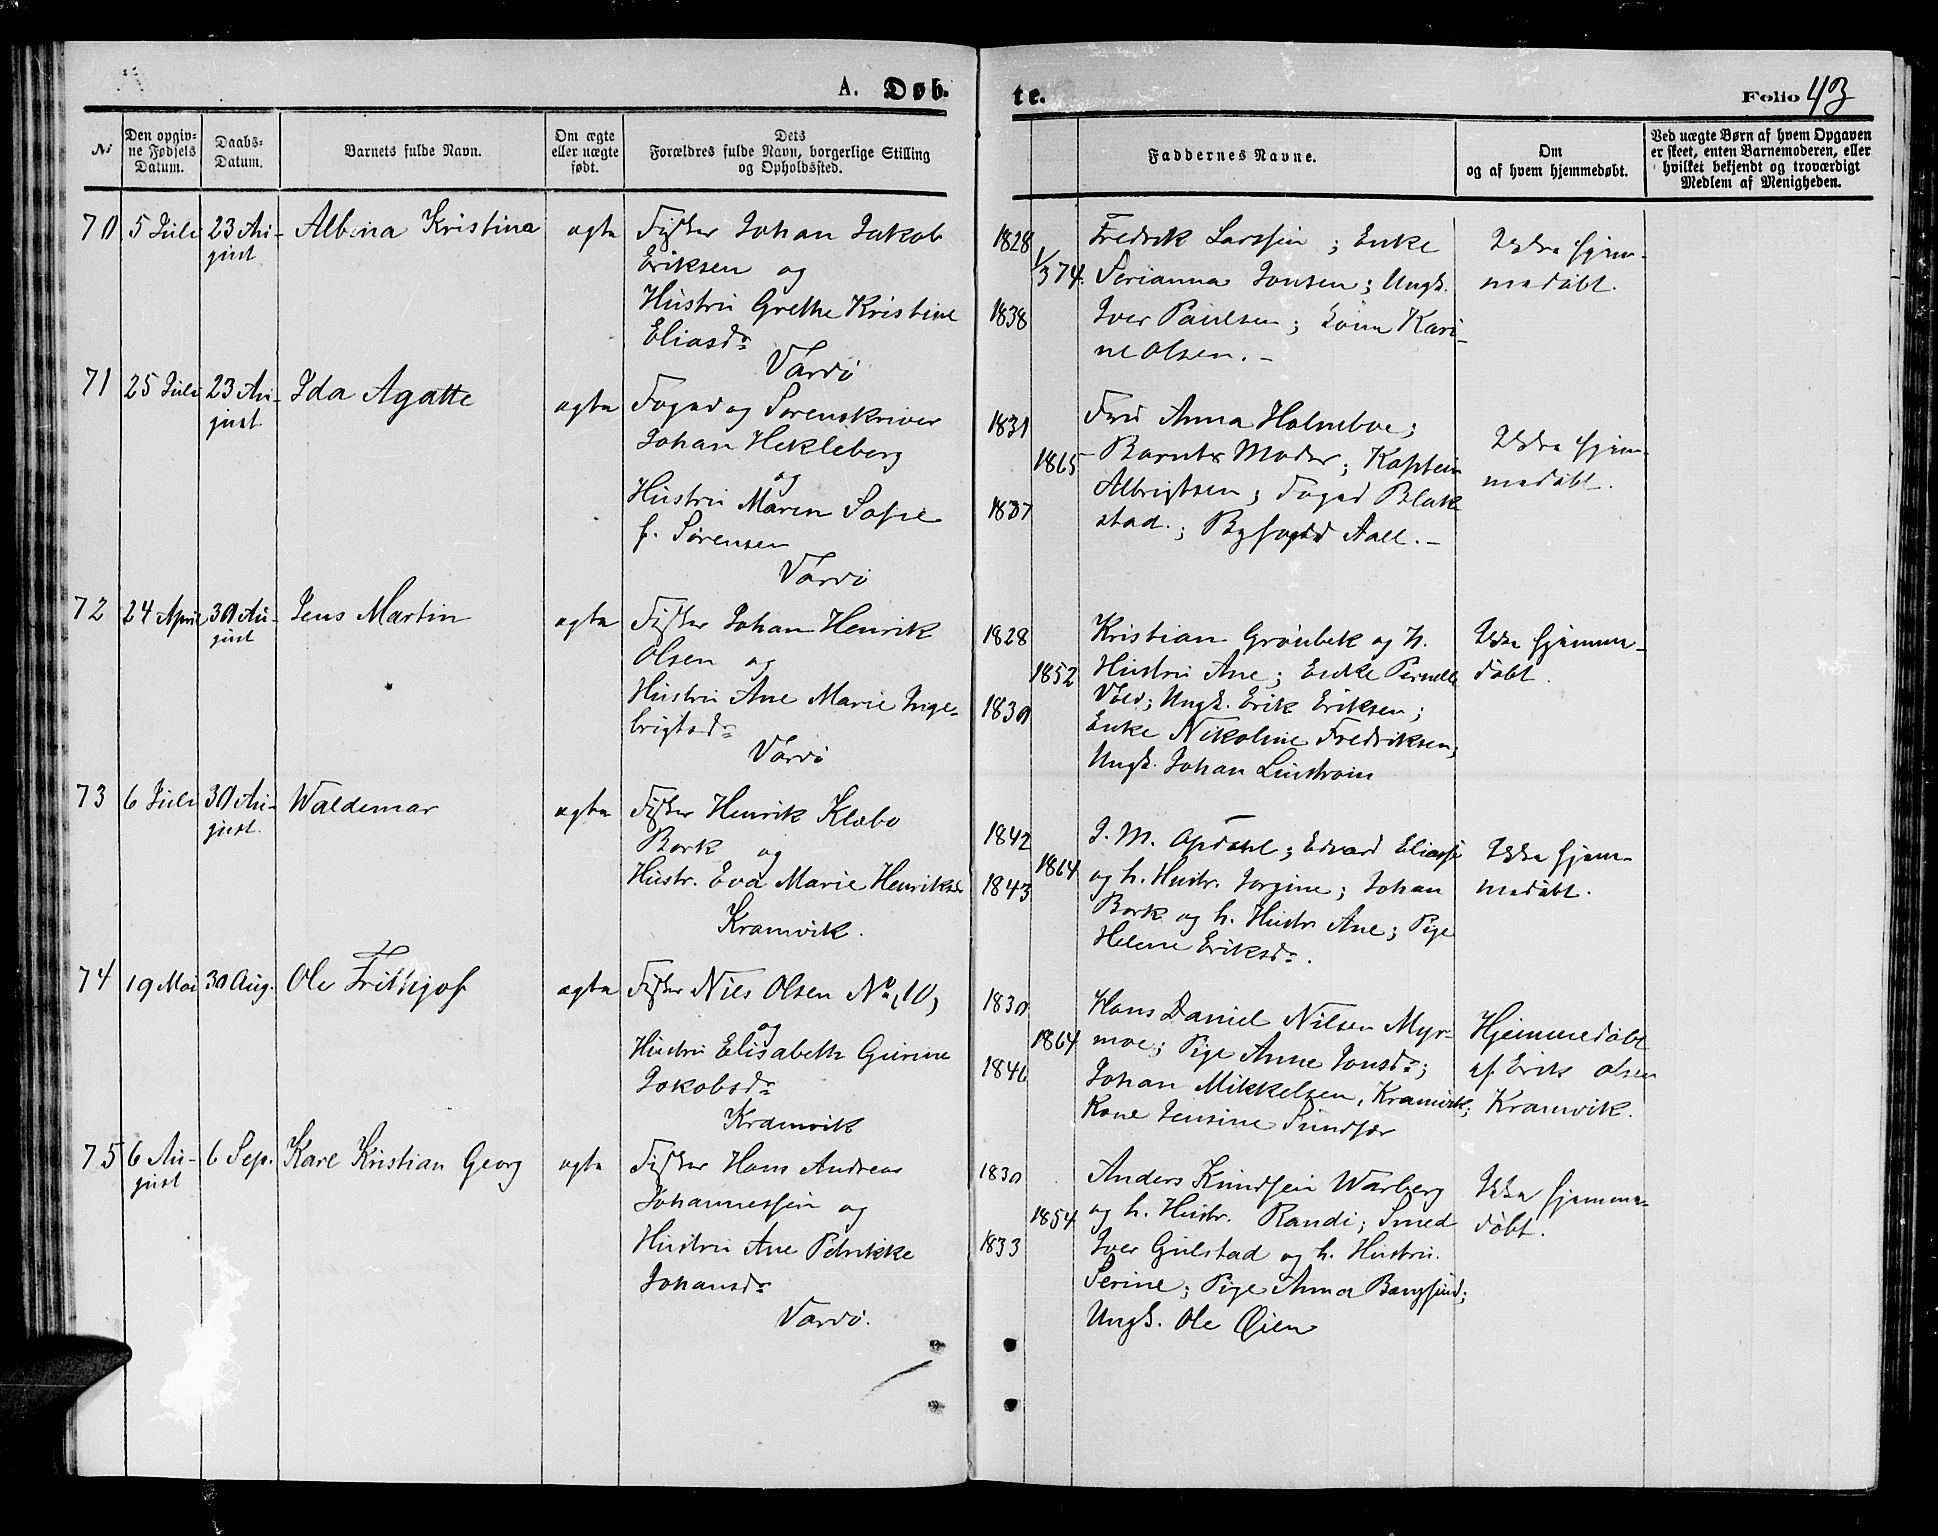 A. Døb-
te.
Folio 43
No
Den opgiv-
ne Fødsels
Datum.
Daabs-
Datum.
Barnets fulde Navn.
Om ægte
eller uægte
født.
Dets
Forældres fulde Navn, borgerlige Stilling
og Opholdssted.
Faddernes Navne.
Om
og af hvem hjemmedøbt.
Ved uægte Børn af hvem Opgaven
er skeet, enten Barnemoderen, eller
hvilket bekjendt og troværdigt
Medlem af Menigheden.
70
5 Juli
23 Au-
gust
Albina Kristina
ægte
Fisker Johan Jakob
Eriksen og
Hustru Grethe Kristine
Eliasdr
Vardö
1828
1/3 74.
1838
Fredrik Larssen ; Enke
Serianna Jonsen ; Ungk.
Iver Paulsen ; Kari-
ne Olsen. –
Ikke hjem-
medöbt.
71
25 Juli
23 Au-
gust
Ida Agatte
ægte
Foged og Sorenskriver
Johan Hekleberg
og
Hustru Maren Sofie
f. Sörensen
Vardö
1831
1865
1837
Fru Anna Holmboe ;
Barnets Moder ; Kaptein
Albrigtsen ; Foged Blak
stad. ; Byfoged Aall. –
Ikke hjem-
medöbt.
72
24 April
30 Au-
gust
Jens Martin
ægte
Fisker Johan Henrik
Olsen og
Hustru Ane Marie Inge-
brigtsdr
Vardö
1828
1852
1830
Kristian Grönbek og h.
Hustru Ane ; Enke Pernelle
Vold ; Ungk. Erik Eriksen ;
Enke Nikoline Fredriksen ;
Ungk. Johan Lindtröm
Ikke hjemme-
döbt.
73
6 Juli
30 Au-
gust.
Waldemar
ægte
Fisker Henrik Klæbo
Bork og
Hustr. Eva Marie Henriksdr
Kramvik.
1842
1864
1843
J. M. Opdahl ; Edvard Eliass.
og h. Hustr. Jorgine ; Johan
Bork og h. Hustr. Ane ; Pige
Helene Eriksdr.
Ikke hjem-
medöbt.
74
19 Mai
30 Aug.
Ole Frithjof
ægte
Fisker Nils Olsen No (10)
og
Hustru Elisabeth Gurine
Jakobsdr
Kramvik
1830
1864
1846
Hans Daniel Nilsen Myr-
moe ; Pige Anne Jonsdr ;
Johan Mikkelsen, Kramvik ;
Kone Jensine Sundfær
Hjemmedöbt
af Erik Olsen
Kramvik.
75
6 Au-
gust
6 Sep.
Karl Kristian Georg
ægte
Fisker Hans Andreas
Johannessen og
Hustru Ane Petrikke
Johansdr
Vardö.
1830
1854
1833
Anders Knudsen Warberg
og h. Hustr. Randi ; Smed
Iver Gulstad og h. Hustru.
Serine ; Pige Anna Bangsund ;
Ungk. Ole Öien
Ikke hjemme-
döbt.